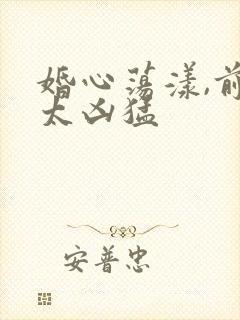 婚心荡漾,前
太凶猛
安普忠